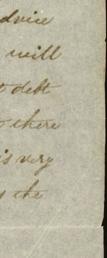 dvice
will
t debt
there
is very
the